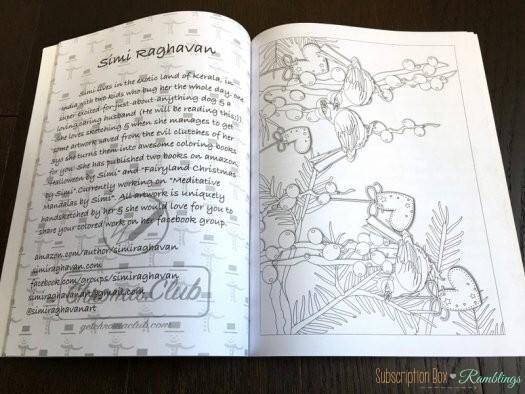 Simi Raghavan
Simi lives in the exotic land of Kerala, in
India, with two kids who bug her the whole day, one
super exited-for-just-about-anything dog & a
loving, caring husband (He will be reading this;))
She loves sketching & when she manages to get
some artwork saved from the evil clutches of her
3yo she turns them into awesome coloring books
for you. She has published two books on amazon
"Halloween by Simi" and "Fairyland Christmas
by Simi". Currently working on "Meditative
Mandalas by Simi". All artwork is uniquely
handsketched by her & she would love for you to
share your colored work on her facebook group.
amazon.com/author/simiraghavan
simiraghavan.com
facebook.com/groups/simiraghavan
@simiraghavanart
Club
getchromaclub.com
Subscription Box Ramblings